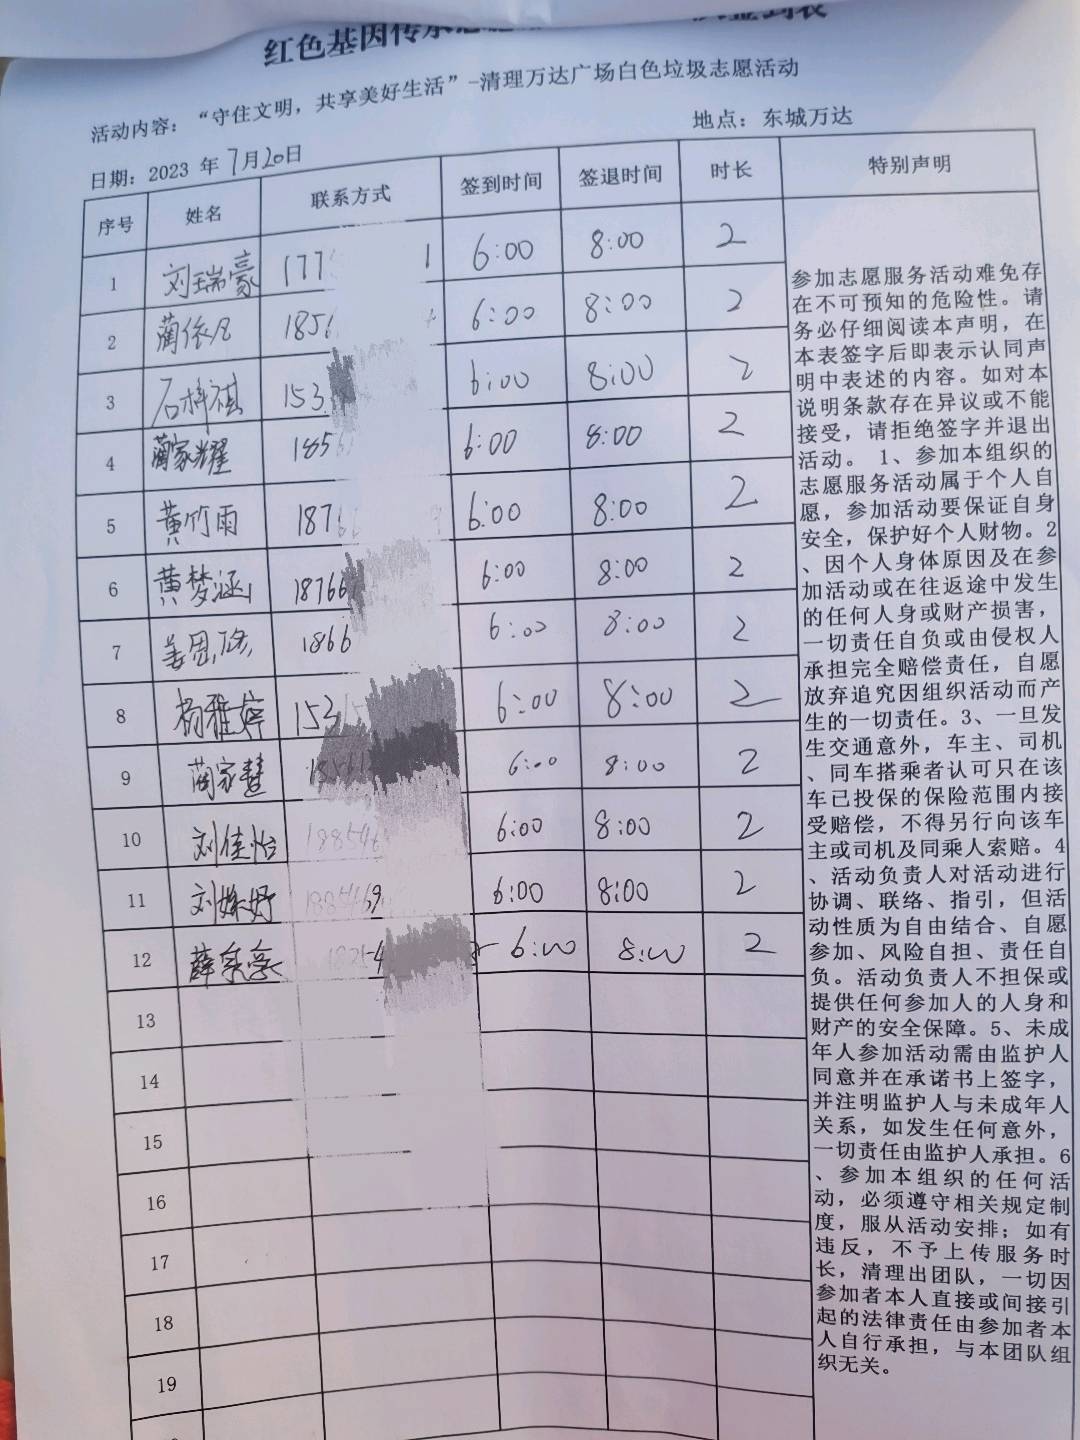 红色基因传承志愿
签到表
活动内容：“守住文明，共享美好生活”-清理万达广场白色垃圾志愿活动
日期：2023 年 7月20日
地点：东城万达
序号 姓名 联系方式 签到时间 签退时间 时长 特别声明
1 刘瑞豪 177 1 6:00 8:00 2
2 蔺依凡 1856 6:00 8:00 2
3 石梓祺 153 6:00 8:00 2
4 蔺家耀 1856 6:00 8:00 2
5 黄竹雨 1876 6:00 8:00 2
6 黄梦涵 18766 6:00 8:00 2
7 姜恩 1866 6:00 8:00 2
8 杨雅婷 153 6:00 8:00 2
9 蔺家慧 18561 6:00 8:00 2
10 刘佳怡 188546 6:00 8:00 2
11 刘姝妤 1885469 6:00 8:00 2
12 薛 18254 6:00 8:00 2
13
14
15
16
17
18
19
参加志愿服务活动难免存
在不可预知的危险性。请
务必仔细阅读本声明，在
本表签字后即表示认同声
明中表述的内容。如对本
说明条款存在异议或不能
接受，请拒绝签字并退出
活动。 1、参加本组织的
志愿服务活动属于个人自
愿，参加活动要保证自身
安全，保护好个人财物。2
、因个人身体原因及在参
加活动或在往返途中发生
的任何人身或财产损害，
一切责任自负或由侵权人
承担完全赔偿责任，自愿
放弃追究因组织活动而产
生的一切责任。3、一旦发
生交通意外，车主、司机
、同车搭乘者认可只在该
车已投保的保险范围内接
受赔偿，不得另行向该车
主或司机及同乘人索赔。4
、活动负责人对活动进行
协调、联络、指引，但活
动性质为自由结合、自愿
参加、风险自担、责任自
负。活动负责人不担保或
提供任何参加人的人身和
财产的安全保障。5、未成
年人参加活动需由监护人
同意并在承诺书上签字，
并注明监护人与未成年人
关系，如发生任何意外，
一切责任由监护人承担。6
、参加本组织的任何活
动，必须遵守相关规定制
度，服从活动安排；如有
违反，不予上传服务时
长，清理出团队，一切因
参加者本人直接或间接引
起的法律责任由参加者本
人自行承担，与本团队组
织无关。